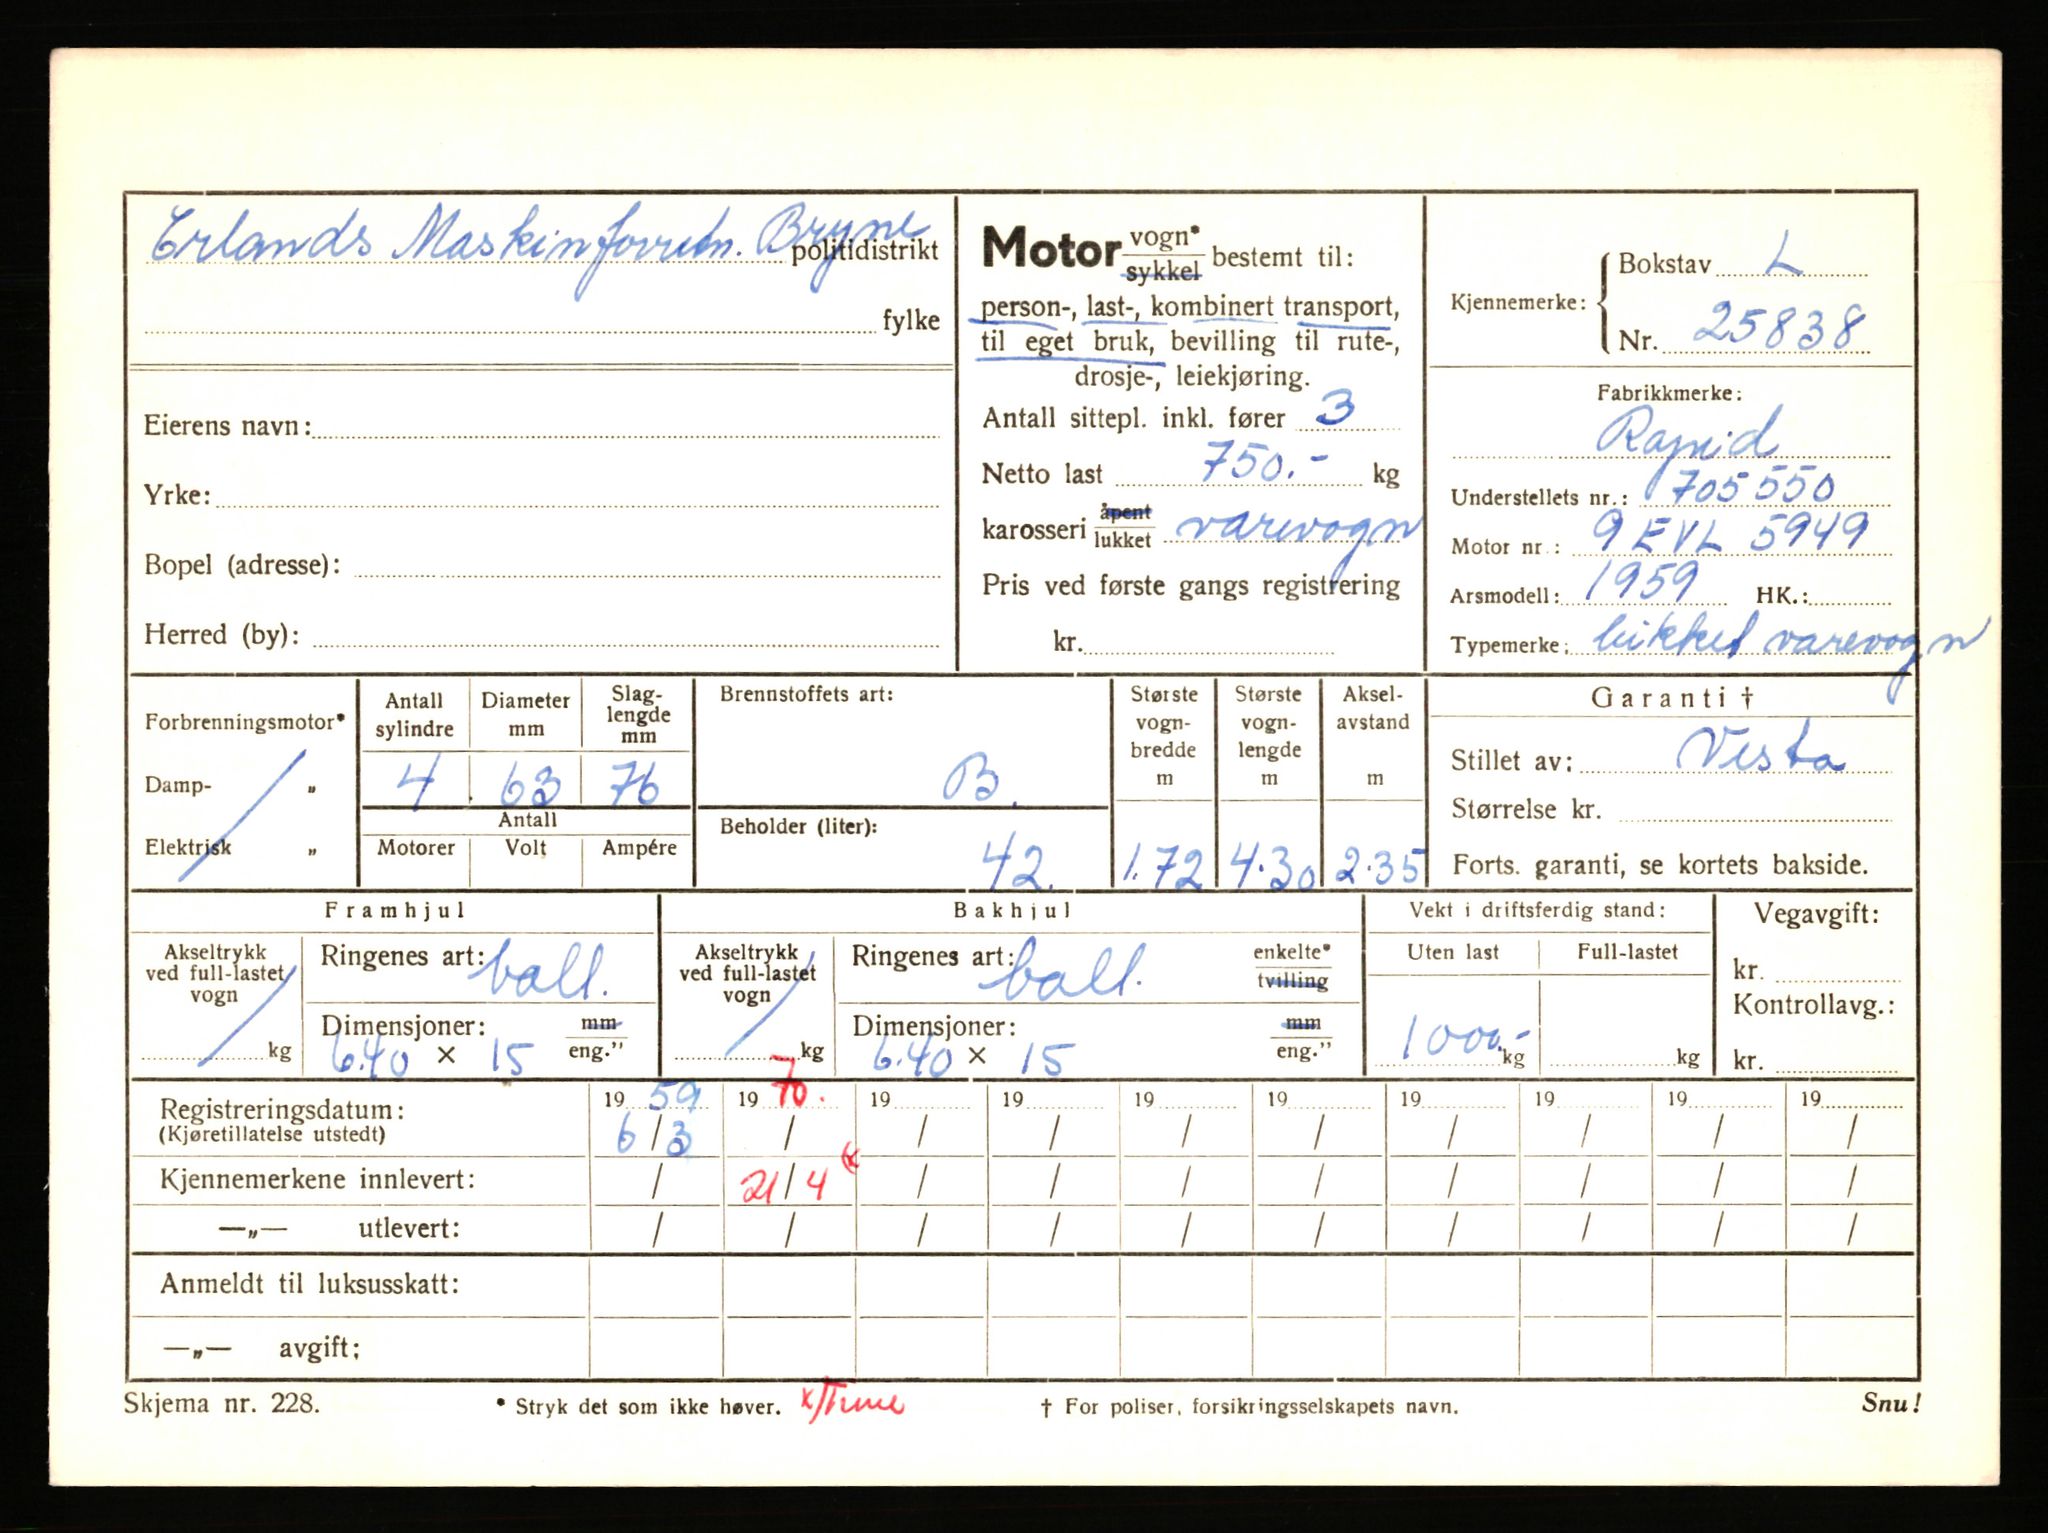 Erlands Maskinforretn. Bryne politidistrikt
fylke
Eierens navn:
Yrke:
Bopel (adresse):
Herred (by):
Motor vogn* sykkel bestemt til:
person-, last-, kombinert transport,
til eget bruk, bevilling til rute-,
drosje-, leiekjøring.
Antall sittepl. inkl. fører 3
Netto last 750.- kg
karosseri åpent lukket varevogn
Pris ved første gangs registrering
kr.
Kjennemerke: Bokstav L
Nr. 25838
Fabrikkmerke:
Rapid
Understellets nr.: 705550
Motor nr.: 9 EVL 5949
Arsmodell: 1959 HK.:
Typemerke: lukket varevogn
Forbrenningsmotor*
Damp- „
Elektrisk „
Antall sylindre
Diameter mm
Slag-lengde mm
4 63 76
Antall
Motorer Volt Ampére
Brennstoffets art:
B.
Beholder (liter):
42.
Største vogn-bredde m
1.72
Største vogn-lengde m
4.30
Aksel-avstand m
2.35
Garanti †
Stillet av: Vesta
Størrelse kr.
Forts. garanti, se kortets bakside.
Framhjul
Akseltrykk ved full-lastet vogn
kg
Ringenes art: ball.
Dimensjoner: mm eng."
6.40 × 15
Bakhjul
Akseltrykk ved full-lastet vogn
kg
Ringenes art: ball. enkelte* tvilling
Dimensjoner: mm eng."
6.40 × 15
Vekt i driftsferdig stand:
Uten last Full-lastet
1000.- kg kg
Vegavgift:
kr.
Kontrollavg.:
kr.
Registreringsdatum: 19 59 19 70. 19 19 19 19 19 19 19 19
(Kjøretillatelse utstedt) 6/3 / / / / / / / / /
Kjennemerkene innlevert: / 21/4 x / / / / / / / /
—„— utlevert: / / / / / / / / / /
Anmeldt til luksusskatt:
—„— avgift:
Skjema nr. 228. * Stryk det som ikke høver. x/Time † For poliser, forsikringsselskapets navn. Snu!